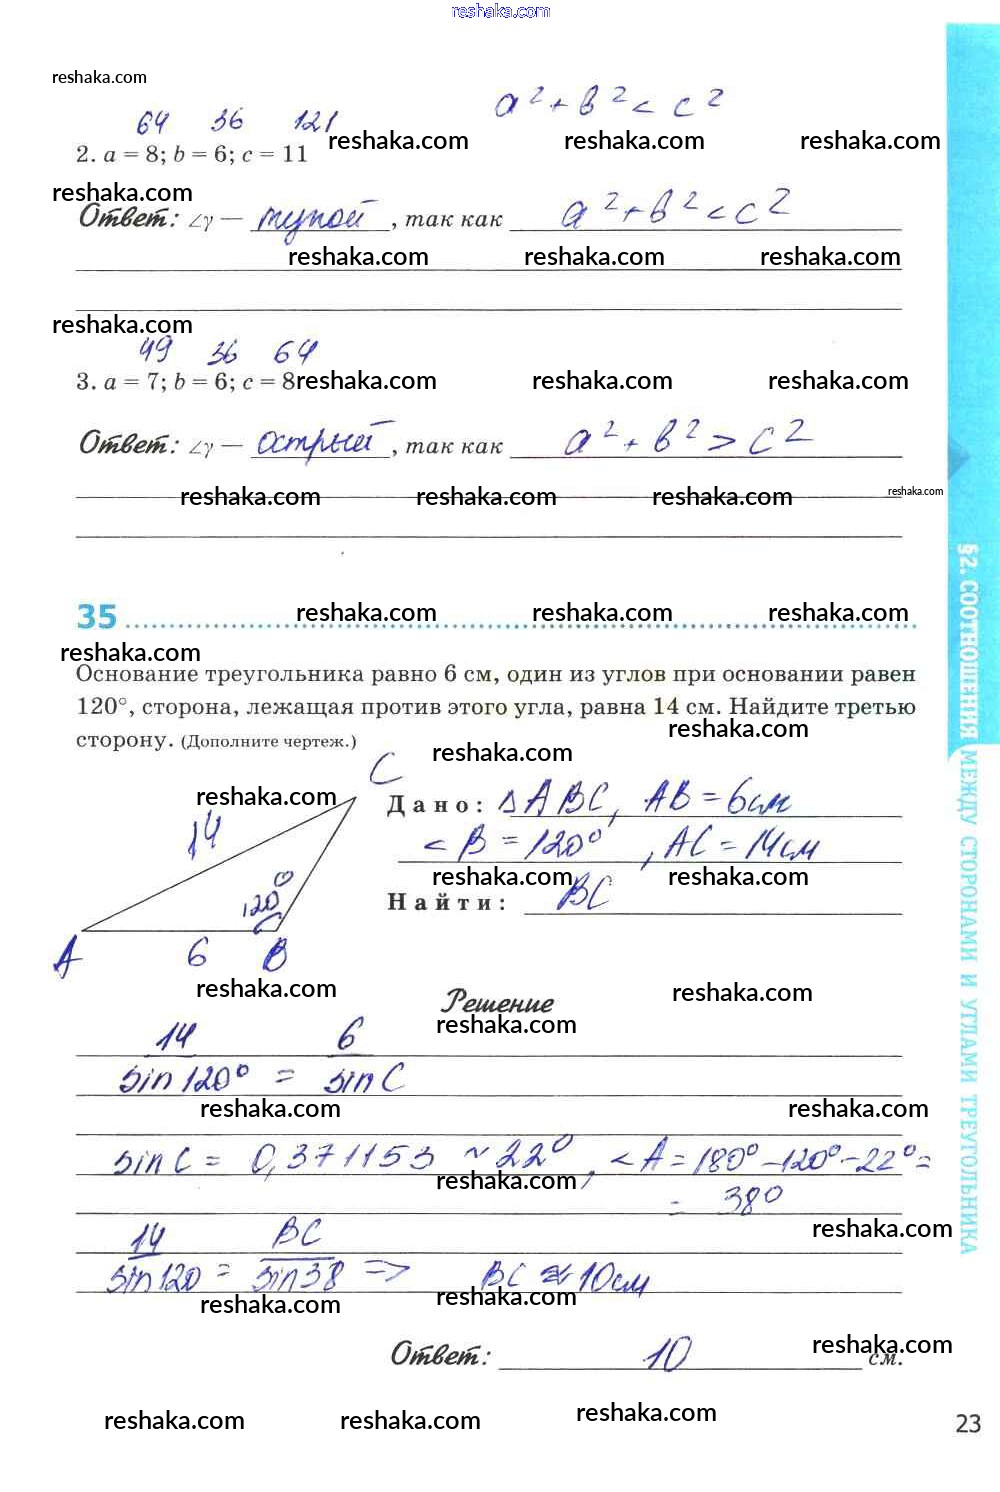 reshaka.com
reshaka.com
a² + b² < c²
64 36 121
reshaka.com reshaka.com reshaka.com
2. a = 8; b = 6; c = 11
reshaka.com
Ответ: ∠γ — тупой, так как a² + b² < c²
reshaka.com reshaka.com reshaka.com
reshaka.com
49 36 64
3. a = 7; b = 6; c = 8 reshaka.com reshaka.com reshaka.com
Ответ: ∠γ — острый, так как a² + b² > c²
reshaka.com reshaka.com reshaka.com reshaka.com
§2. СООТНОШЕНИЯ МЕЖДУ СТОРОНАМИ И УГЛАМИ ТРЕУГОЛЬНИКА
35 reshaka.com reshaka.com reshaka.com
reshaka.com
Основание треугольника равно 6 см, один из углов при основании равен
120°, сторона, лежащая против этого угла, равна 14 см. Найдите третью
reshaka.com
сторону. (Дополните чертеж.) reshaka.com
C
reshaka.com
Дано: △ABC, AB = 6см
14
∠B = 120°, AC = 14см
reshaka.com reshaka.com
120°
Найти: BC
A 6 B
reshaka.com reshaka.com
Решение
reshaka.com
14 6
sin 120° = sin C
reshaka.com reshaka.com
sin C = 0,371153 ~ 22°, ∠A = 180° - 120° - 22° =
reshaka.com
= 38°
reshaka.com
14 BC
sin 120 = sin 38 => BC ≈ 10см
reshaka.com reshaka.com
reshaka.com
Ответ: 10 см.
reshaka.com reshaka.com reshaka.com
23